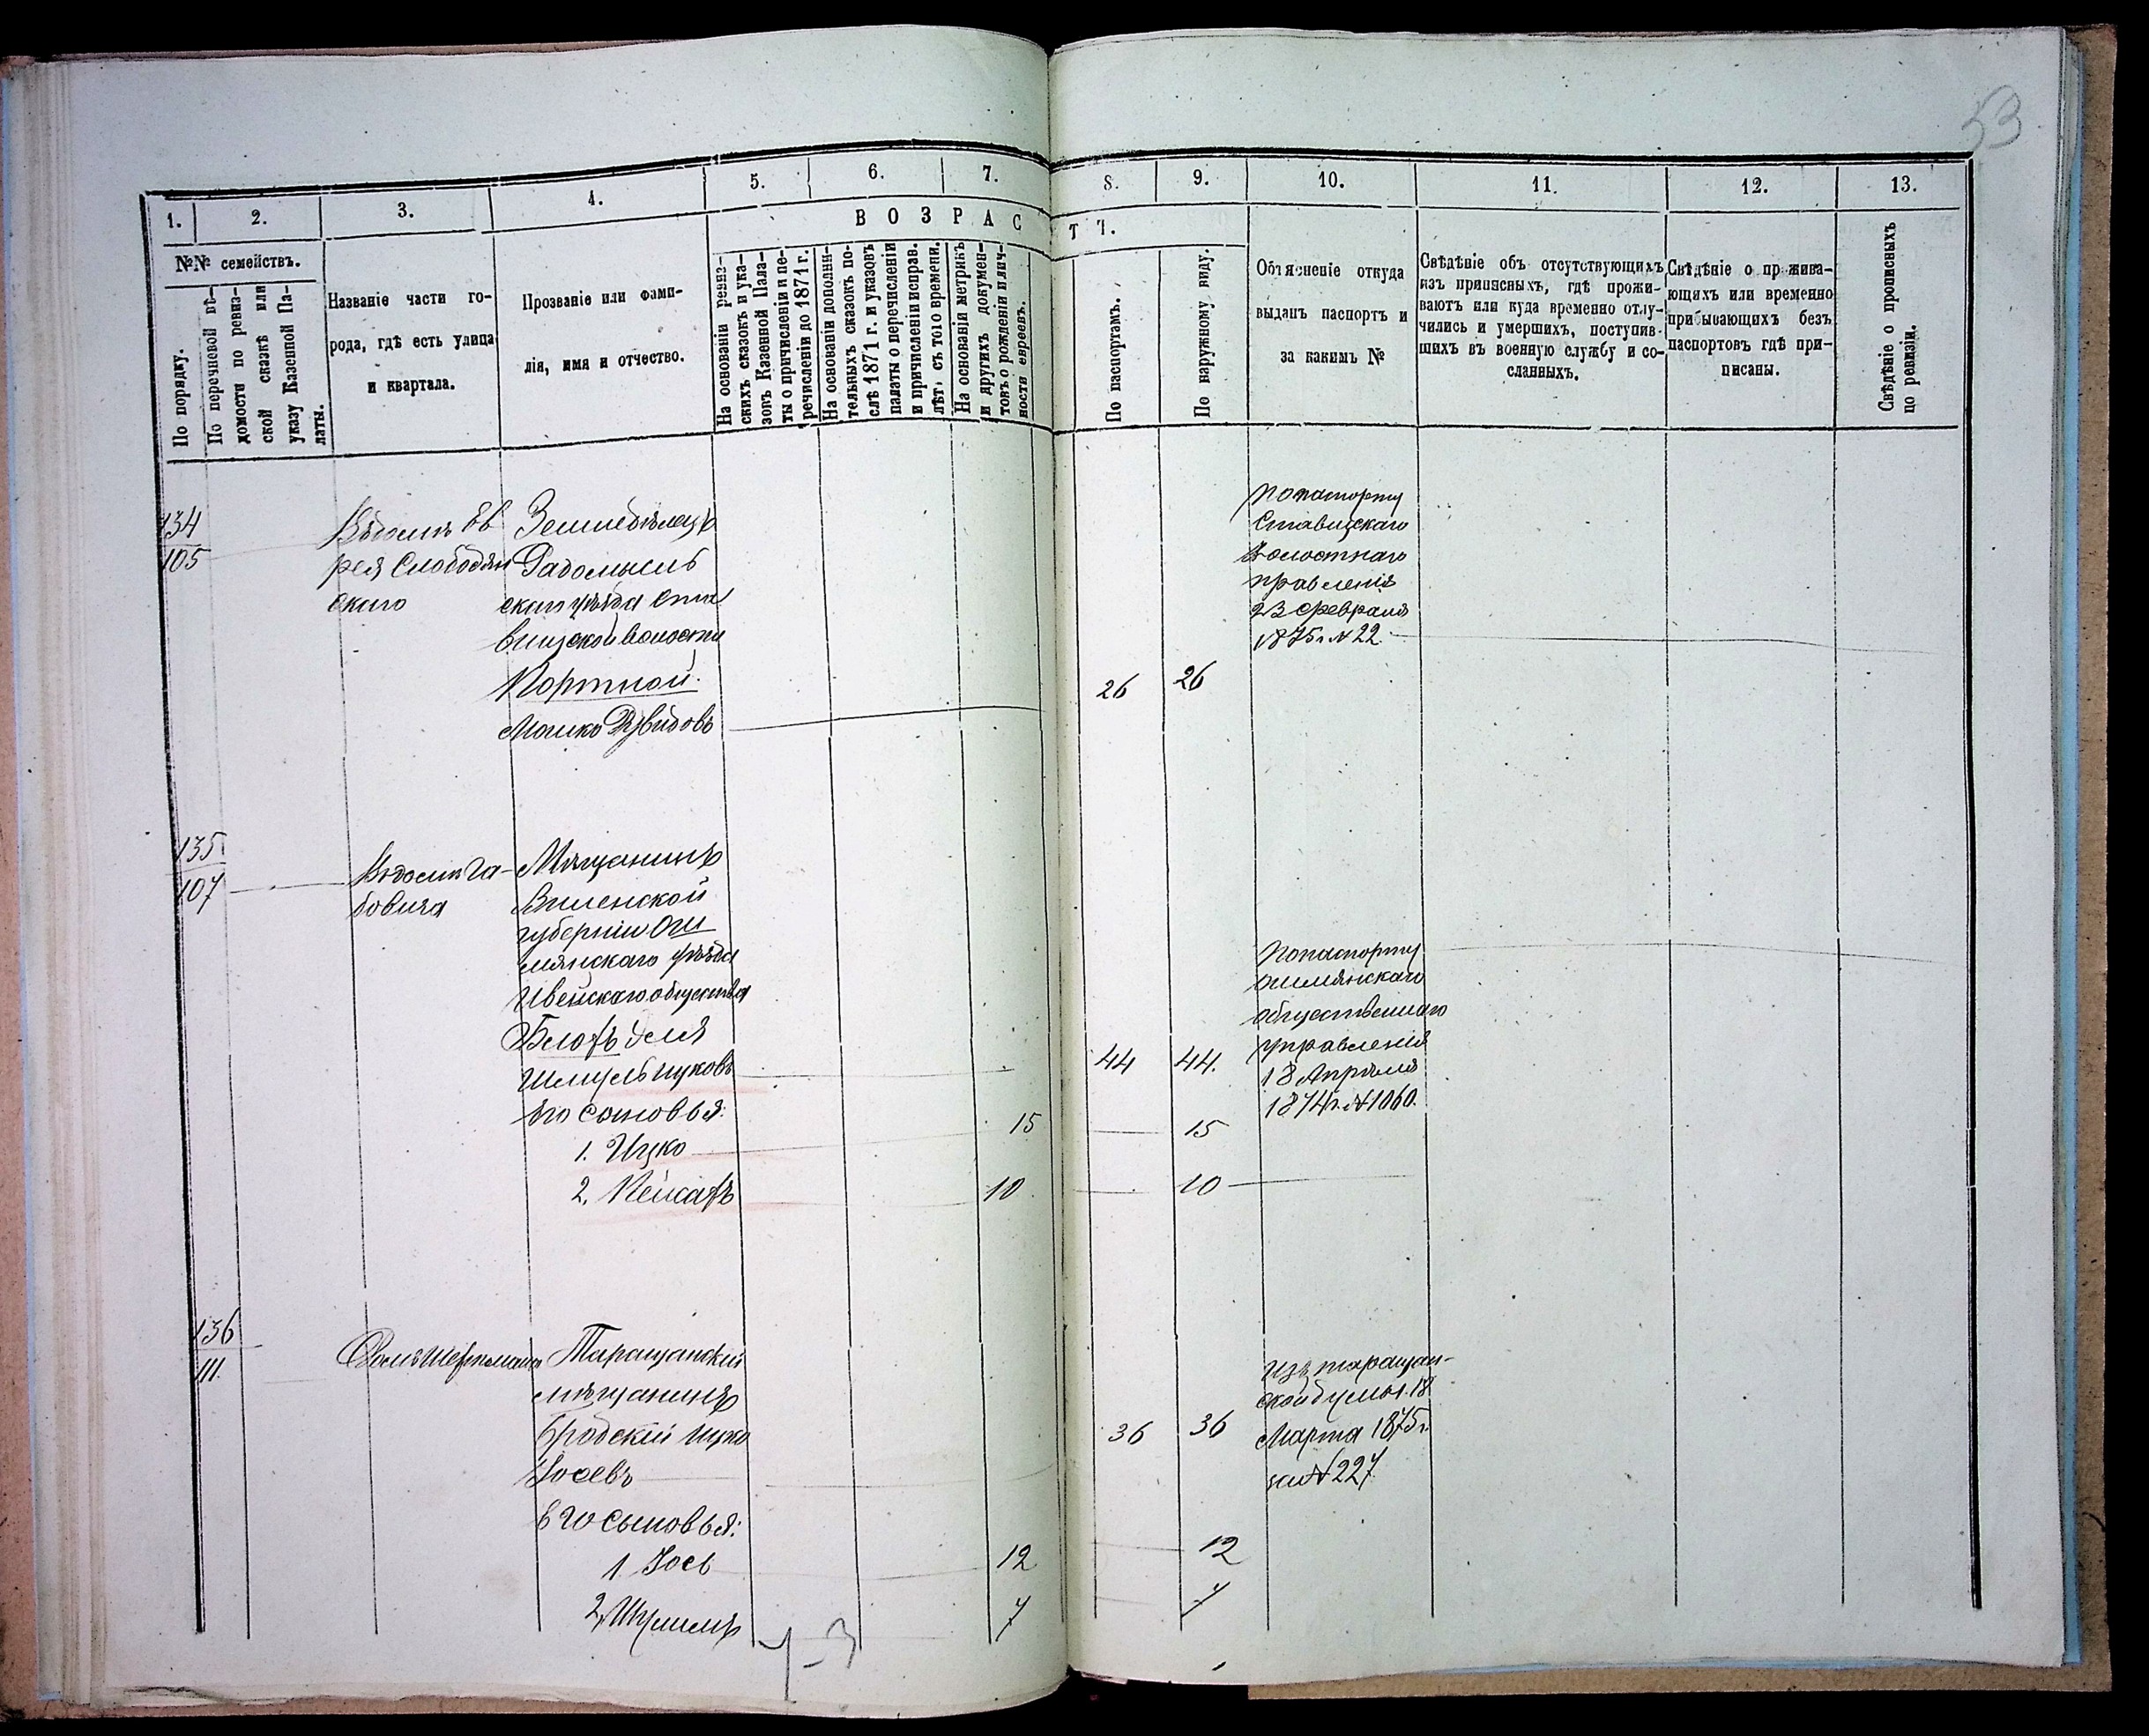 53
1.
2.
3.
4.
5.
6.
7.
8.
9.
10.
11.
12.
13.
№№ семействъ.
ВОЗРАС
ТЪ.
По порядку.
По перечневой вѣ-
домости по ревиз-
ской сказкѣ или
указу Казенной Па-
латы.
Названіе части го-
рода, гдѣ есть улица
и квартала.
Прозваніе или фами-
лія, имя и отчество.
На основаніи ревиз-
скихъ сказокъ и ука-
зовъ Казенной Пала-
ты о причисленіи и пе-
речисленіи до 1871 г.
На основаніи дополни-
тельныхъ сказокъ по-
слѣ 1871 г. и указовъ
палаты о перечисленіи
и причисленіи исправ.
лѣтъ съ того времени.
На основаніи метрикъ
и другихъ докумен-
товъ о рожденіи и лич-
ности евреевъ.
По паспортамъ.
По наружному виду.
Объясненіе откуда
выданъ паспортъ и
за какимъ №
Свѣдѣніе объ отсутствующихъ
изъ приписныхъ, гдѣ прожи-
ваютъ или куда временно отлу-
чились и умершихъ, поступив-
шихъ въ военную службу и со-
сланныхъ.
Свѣдѣніе о прожива-
ющихъ или временно
прибывающихъ безъ
паспортовъ гдѣ при-
писаны.
Свѣдѣніе о прописныхъ
по ревизіи.
134
105
Въ домѣ Ев
рея Слободян
скаго
Земледѣлецъ
Радомысль
скаго уѣзда Ста
вицкой волости
Портной
Мошко Дувидовъ
26
26
По паспорту
Ставицкаго
волостнаго
правленія
23 февраля
1875 г. № 22.
135
107
Въ домѣ Га-
бовича
Мѣщанинъ
Виленской
губерніи Ош
мянскаго уѣзда
Ивейскаго общества
Блохъ Геля
Шмуль Ицковъ
Его сыновья:
1. Ицко
2. Пейсахъ
15
10
44
44.
15
10
По паспорту
ошмянскаго
общественнаго
управленія
18 Апрѣля
1874 г. № 1060.
136
111.
Таращанскій
мѣщанинъ
Бродскій Ицко
Іосевъ
Его сыновья:
1. Іось
2. Шулимъ
12
7
36
36
12
7
Изъ таращан-
ской думы 18
Марта 1875 г.
за № 227